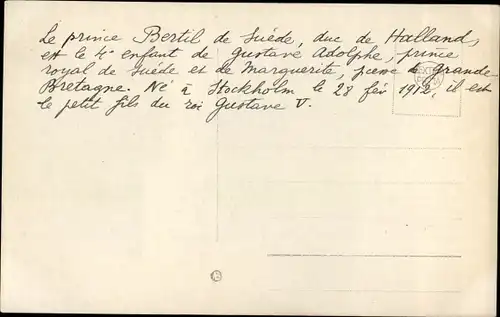 Le prince Bertil de Suède, duc de Halland,
est le 4e enfant de Gustave Adolphe, prince
royal de Suède et de Marguerite, de Grande-
Bretagne. Né à Stockholm le 28 fév 1912, il est
le petit fils du roi Gustave V.